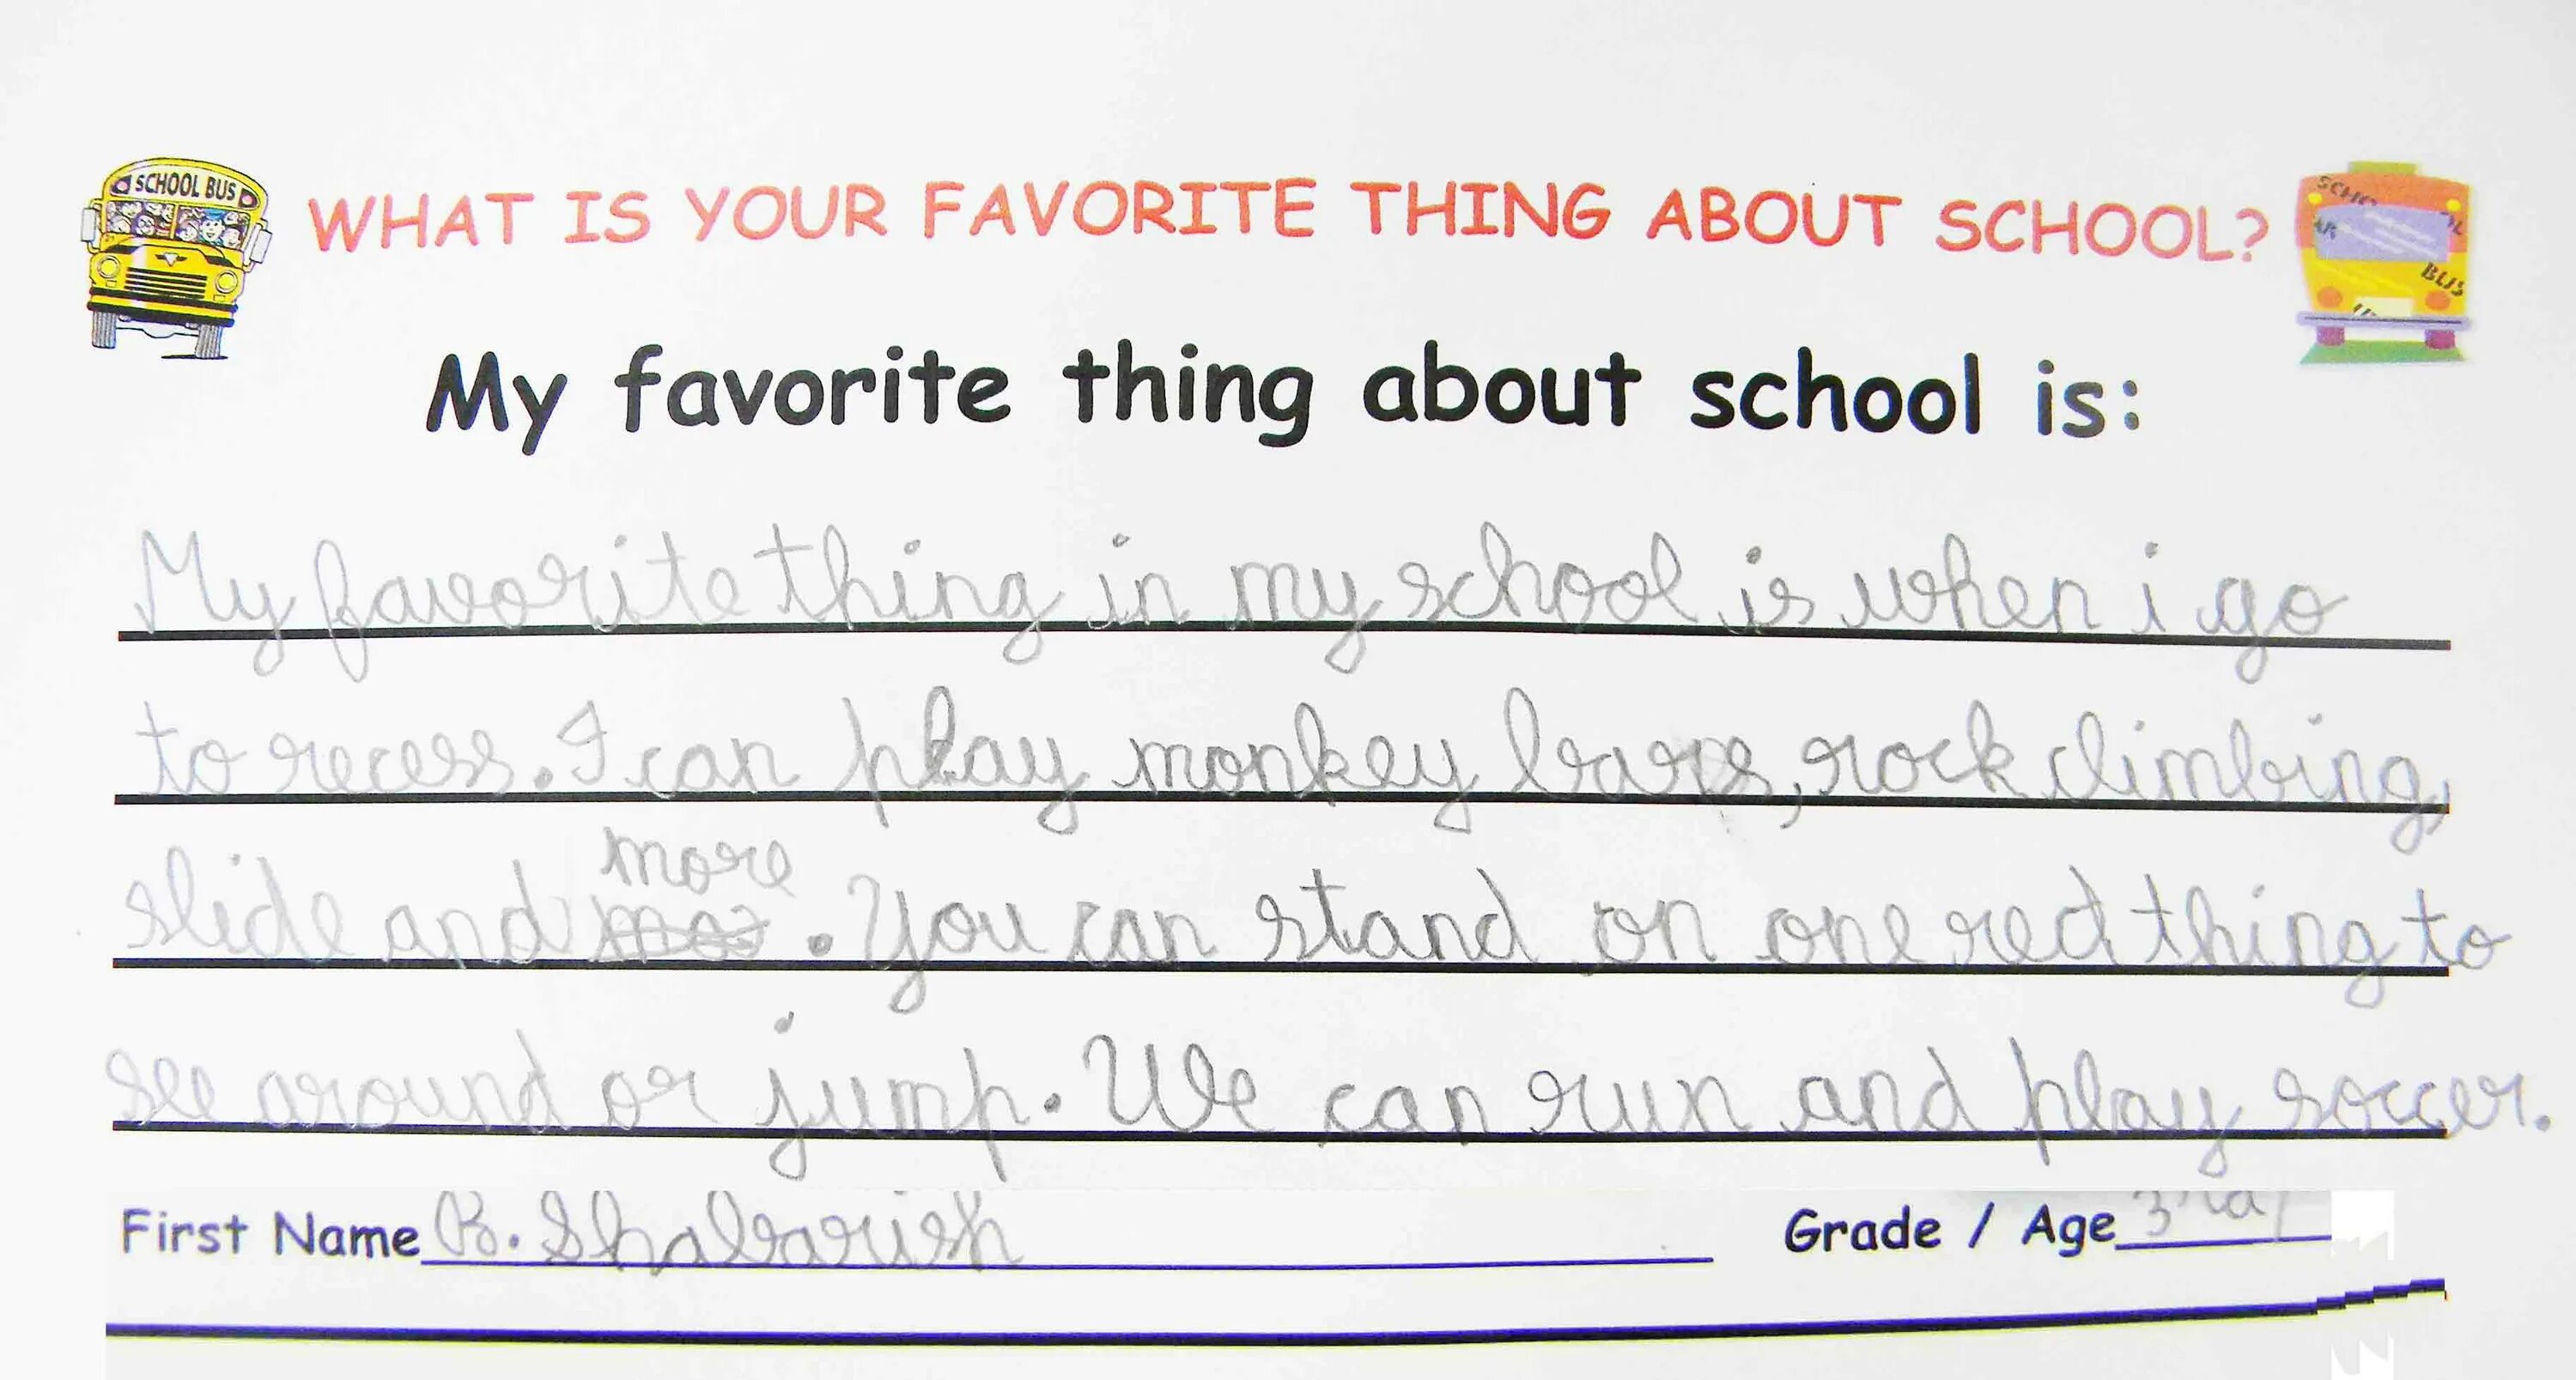 SCHOOL BUS
WHAT IS YOUR FAVORITE THING ABOUT SCHOOL?
My favorite thing about school is:
My favorite thing in my school is when i go
to recess. I can play monkey bars, rock climbing,
slide and more. You can stand on one red thing to
see around or jump. We can run and play soccer.
First Name B. Shabarish Grade / Age 3rd/